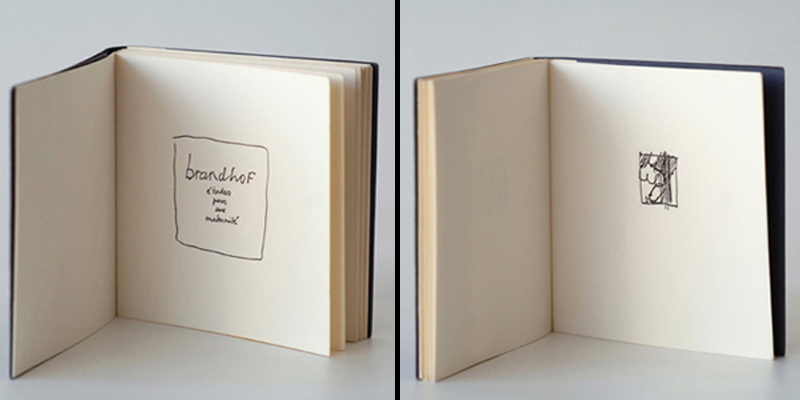 brandhof
études
pour
une
maternité